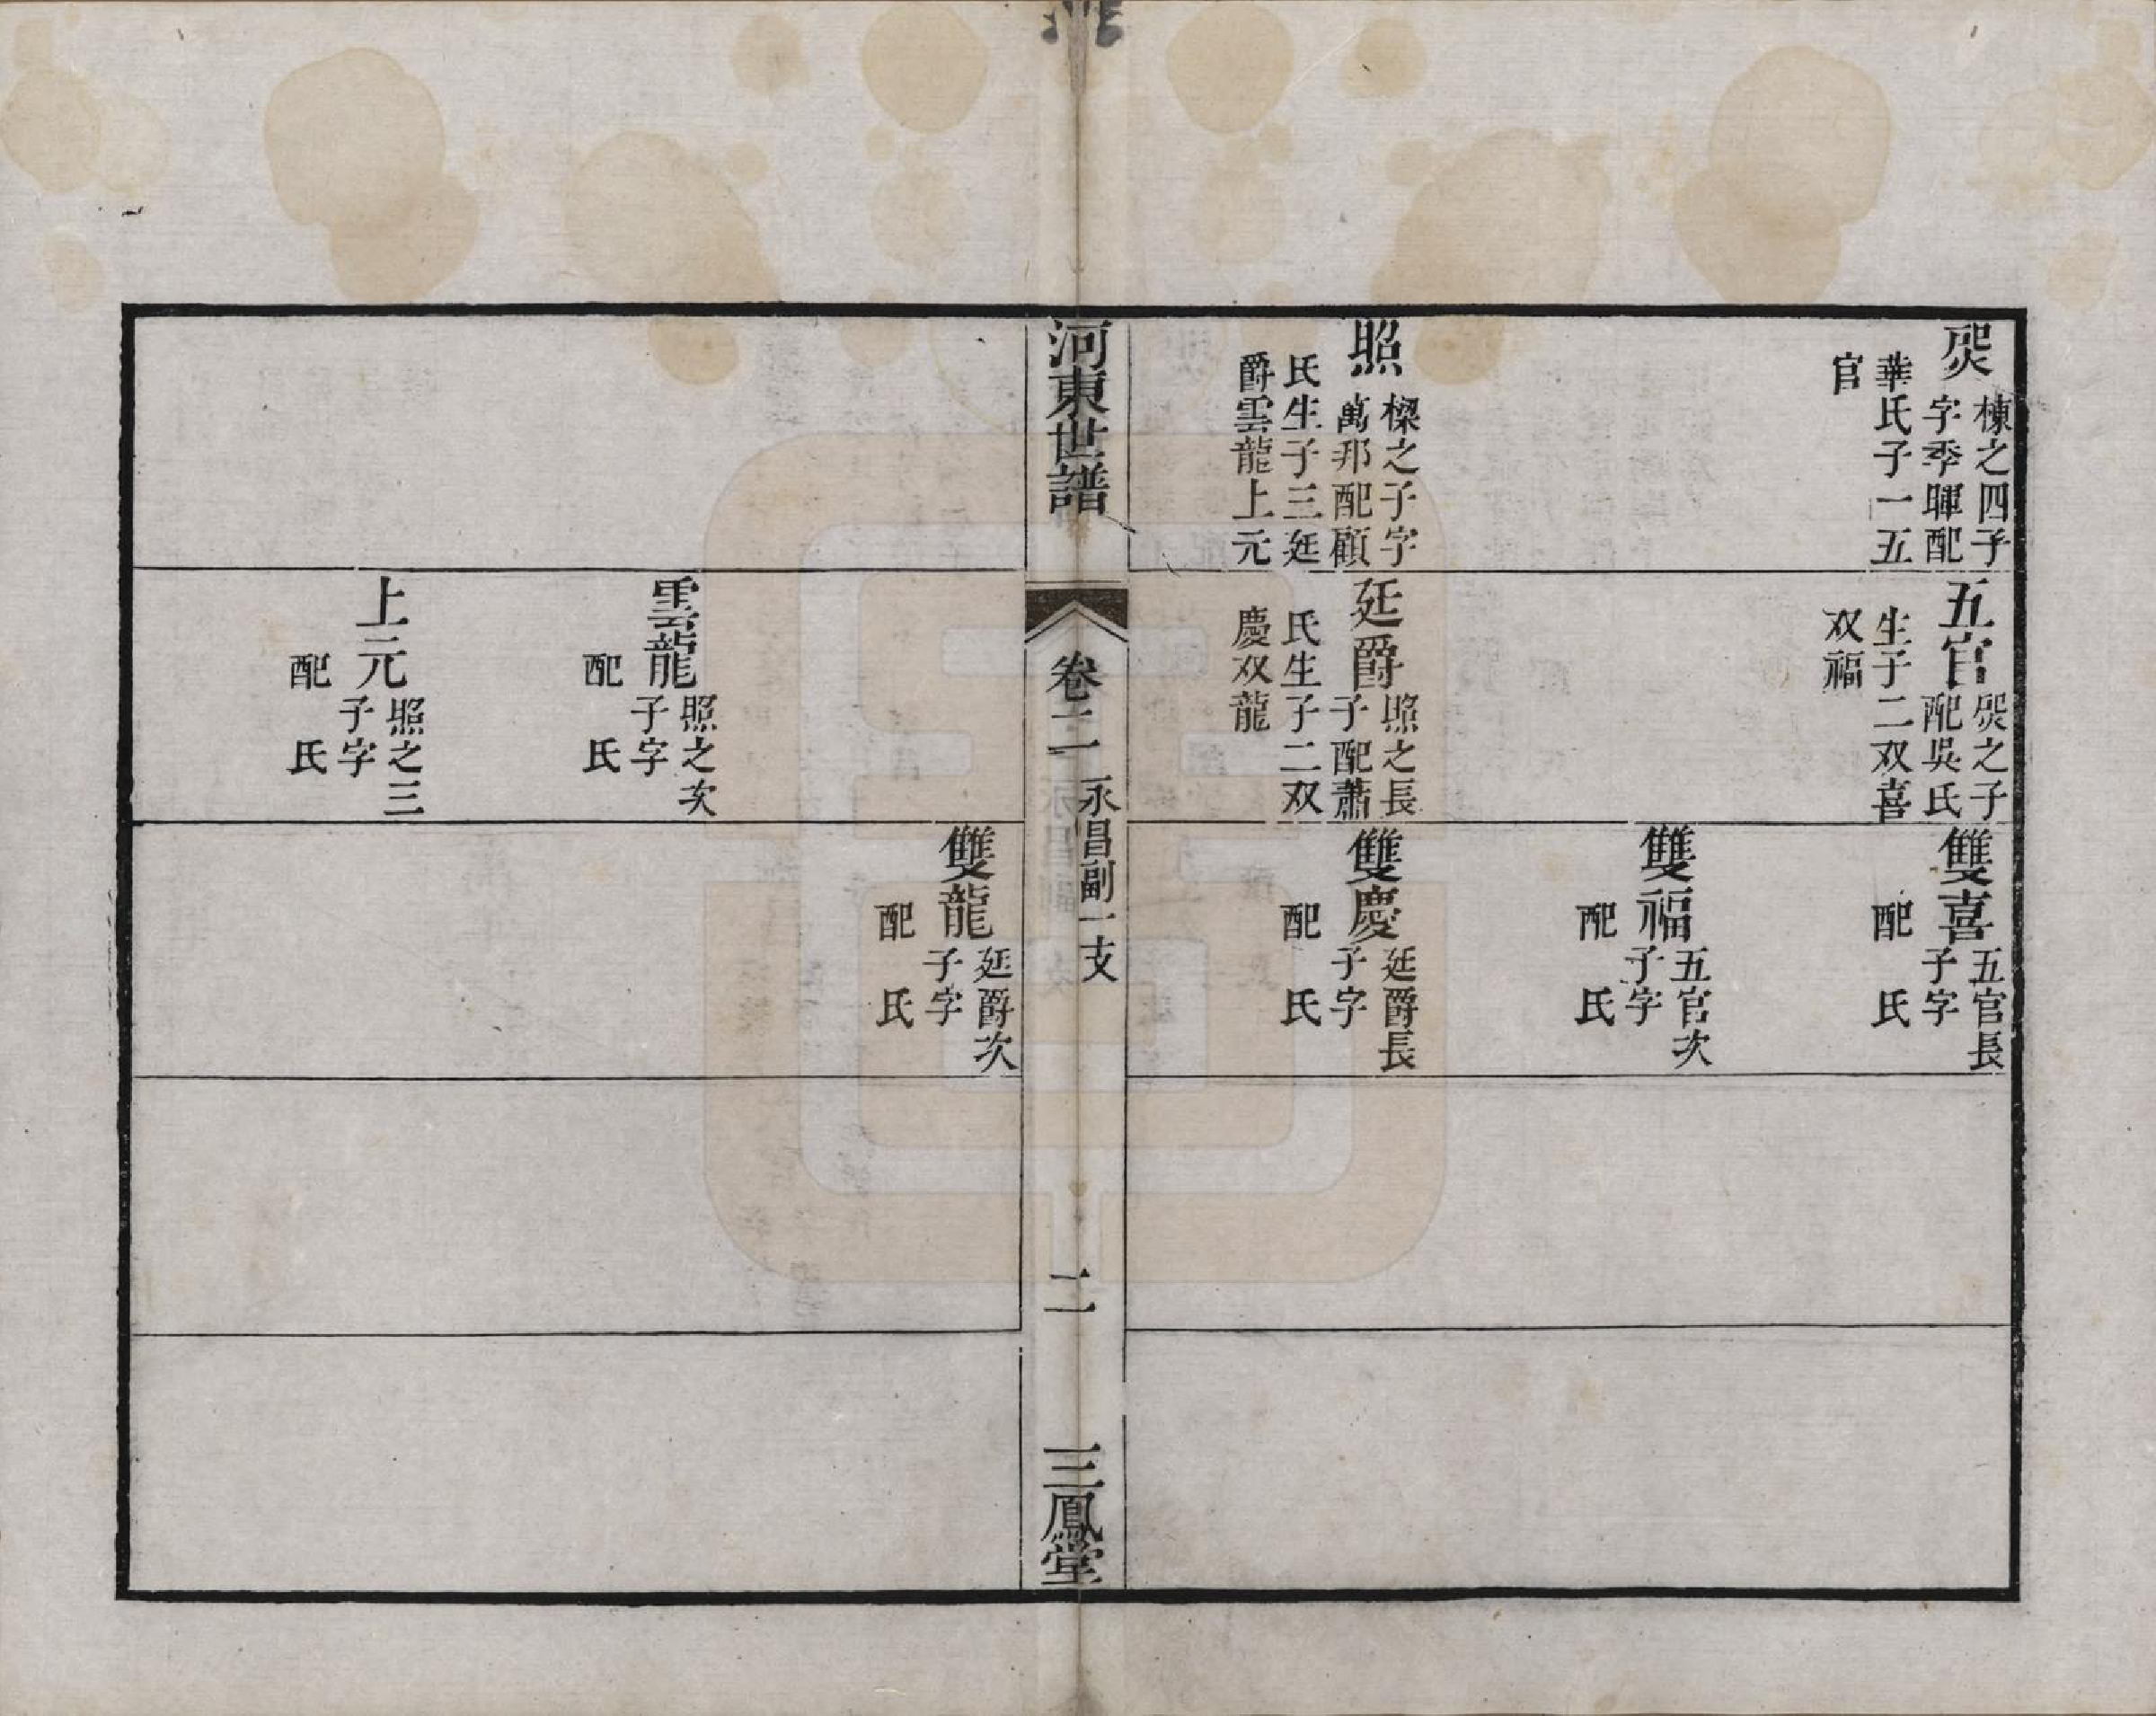 棟之四子
字季暉配
華氏子一五
官
照
樑之子字
萬邦配顧
氏生子三廷
爵雲龍上元
五官
之子
配吳氏
生子二双喜
双福
廷爵
照之長
子配蕭
氏生子二双
慶双龍
雙喜
五官長
子字
配 氏
雙福
五官次
子字
配 氏
雙慶
廷爵長
子字
配 氏
河東世譜
卷二
永昌副一支
二
三鳳堂
雲龍
照之次
子字
配 氏
上元
照之三
子字
配 氏
雙龍
廷爵次
子字
配 氏